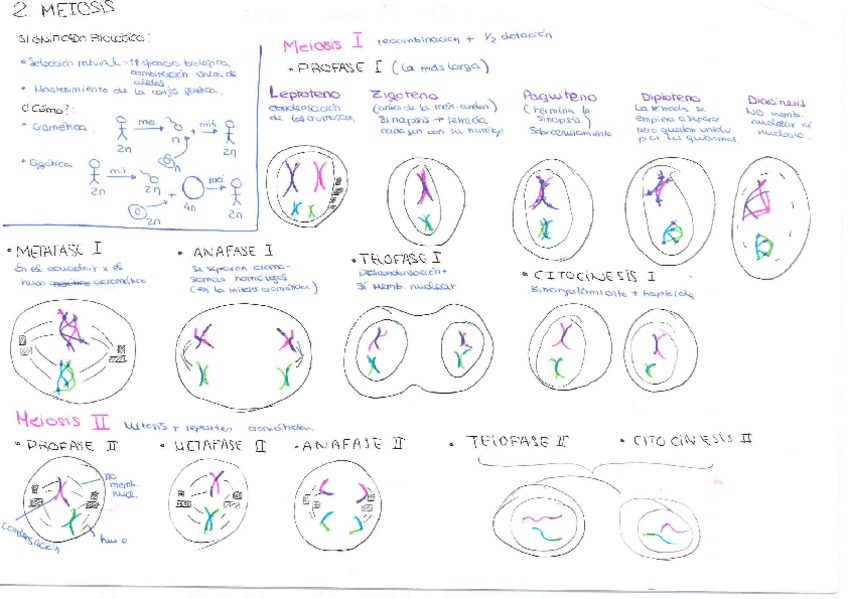 2. MEIOSIS
SIGNIFICADO BIOLÓGICO:
• Selección natural → 1º especie biológica,
combinación única de
alelos.
• Mantenimiento de la genética.
¿Cómo?:
• Gamética.
2n
n
mit
2n
• Cigótica
2n
mit
2n
4n
mei
2n
Meiosis I recombinación + 1/2 dotación
• PROFASE I (La más larga)
Leptoteno
condensación
de los cromosom.
Zigoteno
(antes de la)
Sinapsis → tétrada
cada gen con su homólogo
Paquiteno
(termina la
sinopsis)
Sobrecruzamiento
Diploteno
La tétrada se
empieza a separar
pero quedan unidos
por los quiasmas.
Diacinesis
NO memb.
nuclear ni
nucleolo.
• METAFASE I
En el ecuador x el
huso acromático
• ANAFASE I
Se separan cromo-
somas homólogos
(en la mitosis cromátidas)
• TELOFASE I
Descondensación +
sí memb. nuclear
• CITOCINESIS I
Estrangulamiento + haploide
Meiosis II Mitosis + reparten cromátidas.
• PROFASE II
no
memb.
nucl.
condensación
huso
• METAFASE II
• ANAFASE II
• TELOFASE II
• CITOCINESIS II